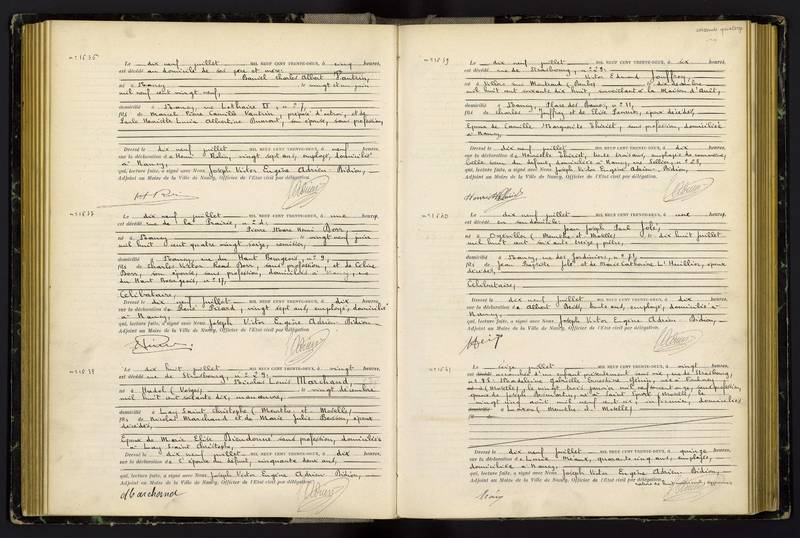 nº 1536
Le dix neuf juillet MIL NEUF CENT TRENTE-DEUX, à cinq heures,
est décédé au domicile de ses père et mère:
Daniel Charles Albert Vautrin,
né à Nancy, le vingt et un juin
mil neuf cent vingt neuf,
domicilié à Nancy, rue Lothaire II, nº 7,
fils de Marcel Pierre Camille Vautrin, et de
Paule Henriette Lucie Albertine son épouse, sans profession,
Dressé le dix neuf juillet, à neuf heures,
sur la déclaration de Henri vingt sept ans, employé, domicilié
à Nancy,
qui, lecture faite, a signé avec Nous, Joseph Victor Eugène Adrien Bidion,
Adjoint au Maire de la Ville de Nancy, Officier de l'Etat civil par délégation.
nº 1537
Le dix neuf juillet MIL NEUF CENT TRENTE-DEUX, à une heures,
est décédé rue de la Prairie, nº 2:
Pierre Henri Dorr,
né à Nancy, le vingt neuf juin
mil huit cent quatre vingt seize,
domicilié à Nancy, rue du Haut Bourgeois, nº 9,
fils de Charles Victor René Dorr, sans profession, et de Céline
Dorr, son épouse, sans profession, domiciliés à Nancy, rue
du Haut Bourgeois, nº 17,
Célibataire,
Dressé le dix neuf juillet MIL NEUF CENT TRENTE-DEUX, à dix heures,
sur la déclaration de René vingt sept ans, employé, domicilié
à Nancy,
qui, lecture faite, a signé avec Nous, Joseph Victor Eugène Adrien Bidion,
Adjoint au Maire de la Ville de Nancy, Officier de l'Etat civil par délégation.
nº 1538
Le dix huit juillet MIL NEUF CENT TRENTE-DEUX, à vingt heures,
est décédé rue de Strasbourg, nº 29:
Nicolas Louis Marchand,
né à (Vosges), le vingt décembre
mil huit cent soixante dix, manœuvre,
domicilié à Lay Saint Christophe, (Meurthe et Moselle),
fils de Nicolas Marchand et de Marie Julie Besson, époux
décédés,
Epoux de Marie Elise Dieudonné sans profession, domiciliée
à Lay Saint Christophe,
Dressé le dix neuf juillet MIL NEUF CENT TRENTE-DEUX, à heures,
sur la déclaration de l'épouse du défunt, cinquante deux ans,
qui, lecture faite, a signé avec Nous, Joseph Victor Eugène Adrien Bidion,
Adjoint au Maire de la Ville de Nancy, Officier de l'Etat civil par délégation.
Marchand
nº 1539
Le dix neuf juillet MIL NEUF CENT TRENTE-DEUX, à six heures,
est décédé rue de Strasbourg, nº 29:
Victor Edmond Jouffroy,
né à (Doubs) le dix
mil huit cent soixante dix huit, surveillant à la Maison d'Arrêt,
domicilié à Nancy, Place des Dames, nº 11,
fils de Charles Jouffroy et de Elise époux décédés,
Epoux de Camille Marguerite sans profession, domiciliée
à Nancy,
Dressé le dix neuf juillet MIL NEUF CENT TRENTE-DEUX, à dix heures,
sur la déclaration de Henriette trente trois ans, employée de commerce,
belle sœur du défunt, domiciliée à Nancy, rue Sellier, nº 28,
qui, lecture faite, a signé avec Nous, Joseph Victor Eugène Adrien Bidion,
Adjoint au Maire de la Ville de Nancy, Officier de l'Etat civil par délégation.
nº 1540
Le dix neuf juillet MIL NEUF CENT TRENTE-DEUX, à une heures,
est décédé en son domicile:
Jean Joseph Paul Jolé,
né à (Meurthe et Moselle) le dix huit juillet
mil huit cent soixante treize, prêtre,
domicilié à Nancy, rue des Jardiniers,
fils de Jean Baptiste Jolé et de Marie Catherine L'Huillier, époux
décédés,
Célibataire,
Dressé le dix neuf juillet MIL NEUF CENT TRENTE-DEUX, à dix heures,
sur la déclaration de Albert trente ans, employé, domicilié à
Nancy,
qui, lecture faite, a signé avec Nous, Joseph Victor Eugène Adrien Bidion,
Adjoint au Maire de la Ville de Nancy, Officier de l'Etat civil par délégation.
nº 1541
Le seize juillet MIL NEUF CENT TRENTE-DEUX, à vingt heures,
est accouchée d'un enfant présentement sans vie, rue de Strasbourg,
Madeleine Gabrielle Ernestine née à
(Moselle), le vingt trois janvier mil neuf cent onze, sans profession,
épouse de Joseph né à Saint (Moselle) le
vingt cinq août mil neuf cent domiciliés
à Laxou (Meurthe et Moselle)
Dressé le dix neuf juillet MIL NEUF CENT TRENTE-DEUX, à quinze heures,
sur la déclaration de Louis quarante cinq ans, employé,
domicilié à Nancy,
qui, lecture faite, a signé avec Nous, Joseph Victor Eugène Adrien Bidion,
Adjoint au Maire de la Ville de Nancy, Officier de l'Etat civil par délégation.